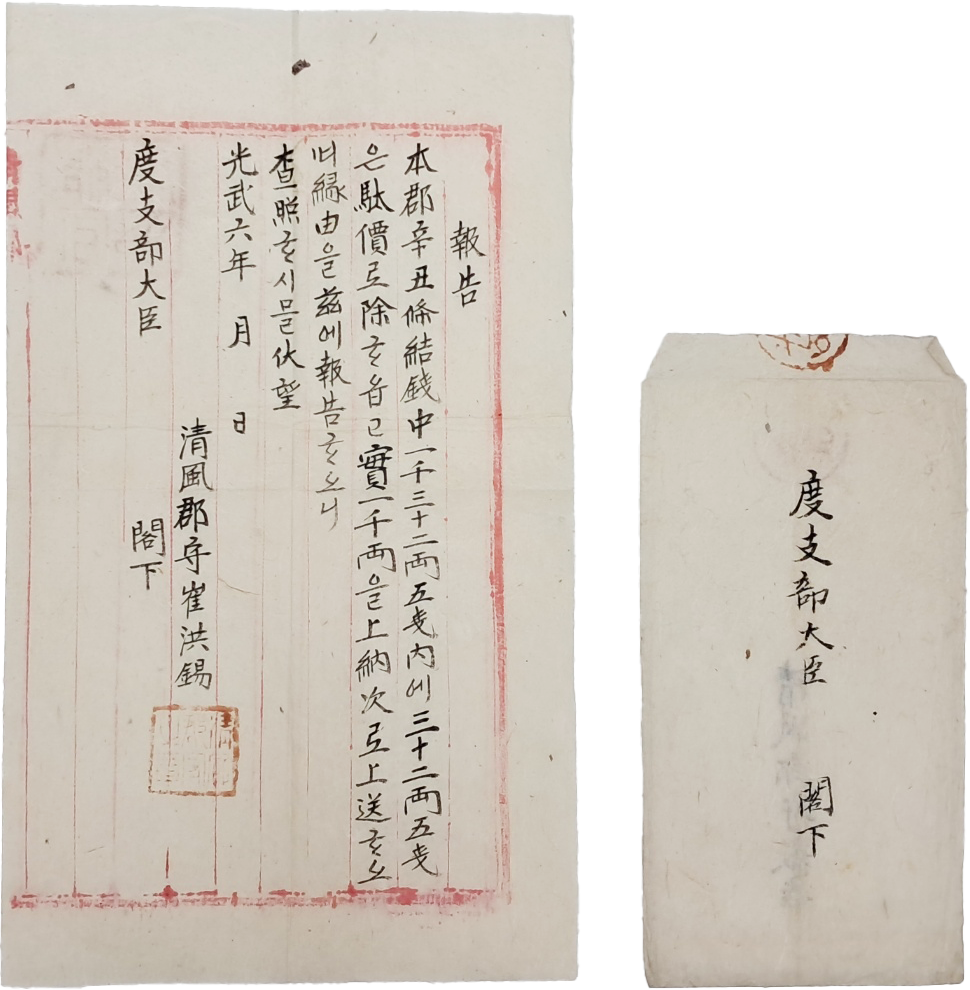 報告
本郡辛丑條結錢中一千三十二兩五戔內에三十二兩五戔
은駄價로除ᄒᆞ읍고實一千兩을上納次로上送ᄒᆞ오
며緣由을玆에報告ᄒᆞ오니
査照ᄒᆞ시믈伏望
光武六年 月 日
清風郡守崔洪錫
度支部大臣 閣下
度支部大臣 閣下